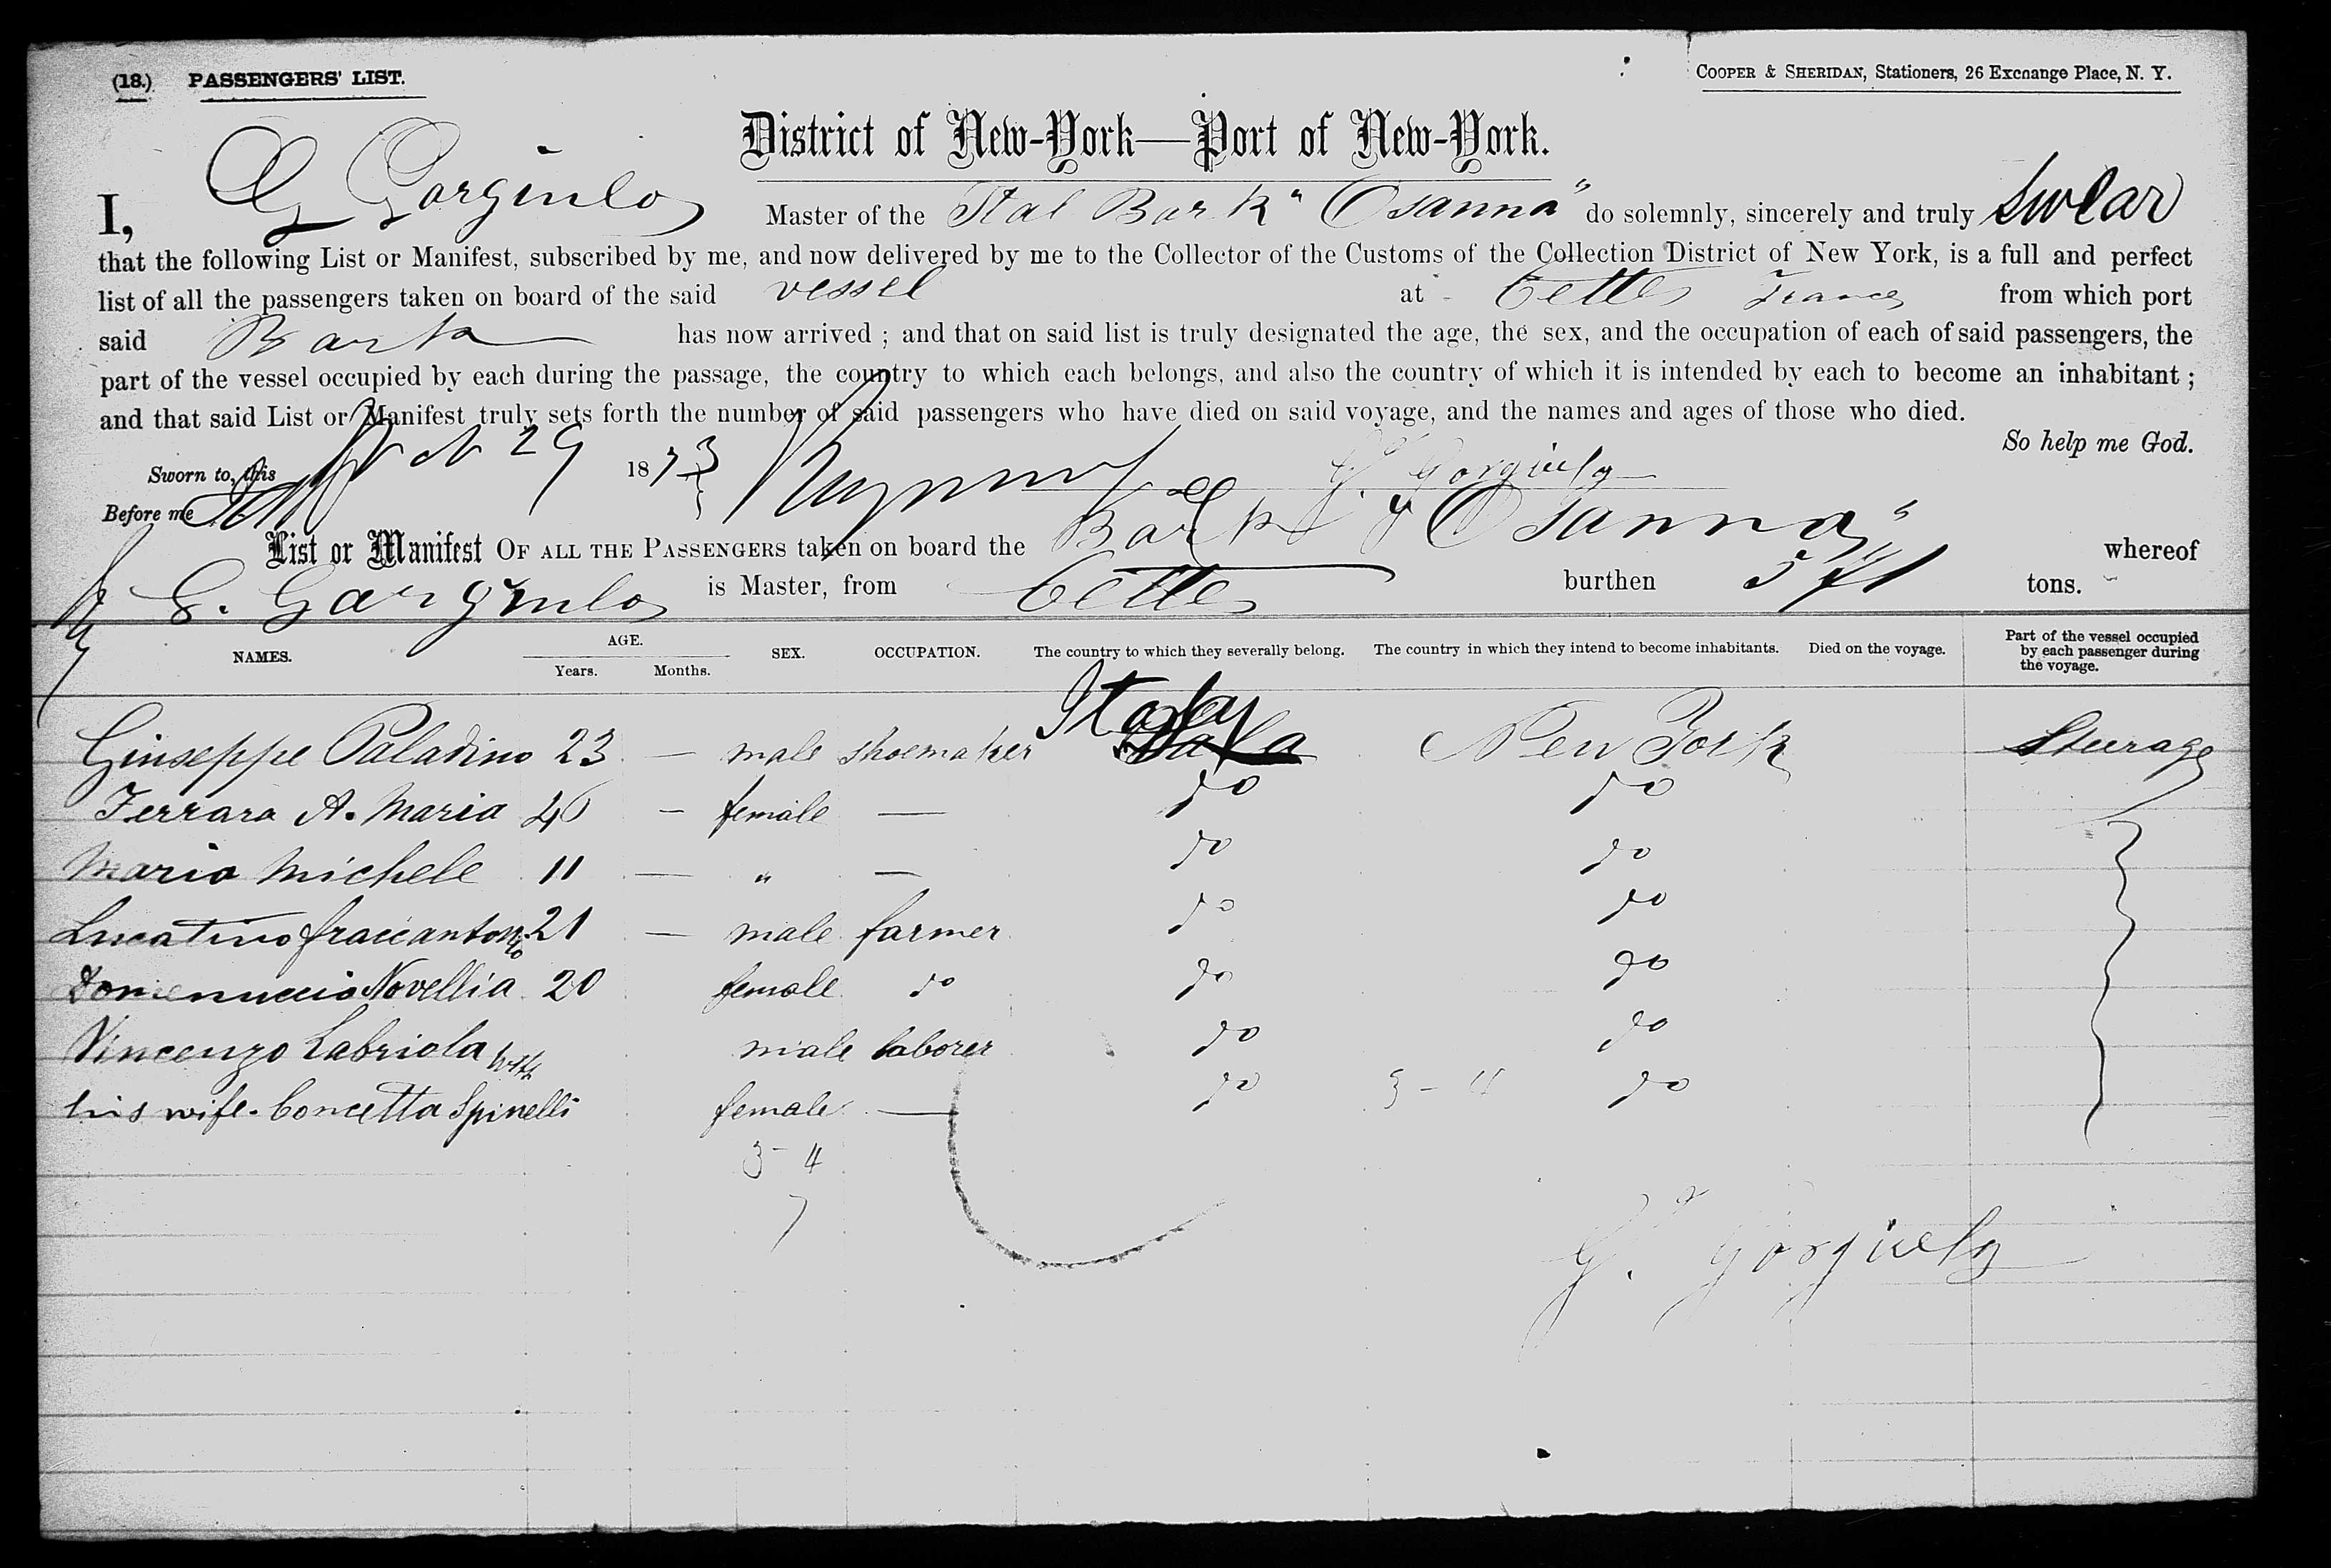 (18.) PASSENGERS' LIST.
COOPER & SHERIDAN, Stationers, 26 Exchange Place, N. Y.
District of New-York—Port of New-York.
I, G Gargiulo Master of the Ital Bark "Osanna" do solemnly, sincerely and truly swear
that the following List or Manifest, subscribed by me, and now delivered by me to the Collector of the Customs of the Collection District of New York, is a full and perfect
list of all the passengers taken on board of the said vessel at Cette France from which port
said Bark has now arrived ; and that on said list is truly designated the age, the sex, and the occupation of each of said passengers, the
part of the vessel occupied by each during the passage, the country to which each belongs, and also the country of which it is intended by each to become an inhabitant ;
and that said List or Manifest truly sets forth the number of said passengers who have died on said voyage, and the names and ages of those who died.
So help me God.
Sworn to, this 29 1873 G. Gargiulo
Before me
List or Manifest OF ALL THE PASSENGERS taken on board the Bark "Osanna" whereof
G. Gargiulo is Master, from Cette burthen 571 tons.
NAMES. AGE. Years. Months. SEX. OCCUPATION. The country to which they severally belong. The country in which they intend to become inhabitants. Died on the voyage. Part of the vessel occupied by each passenger during the voyage.
Giuseppe Paladino 23 — male shoemaker Italy New York Steerage
Ferrara A. Maria 40 — female — do do
Maria Michele 11 — " — do do
Lucatino fraccantonio 21 — male farmer do do
Domenuccia Novellia 20 female do do do
Vincenzo Labriola with male laborer do do
his wife. Concetta Spinelli female — do 3 - 4 do
3 - 4
7
G. Gargiulo